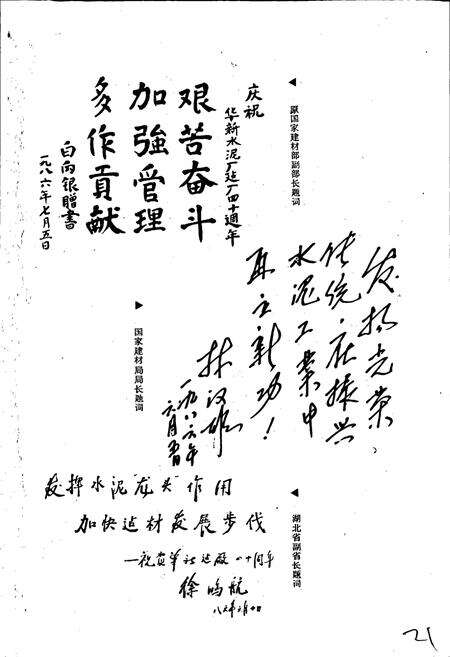 原国家建材部副部长题词
庆祝
华新水泥厂建厂四十週年
艰苦奋斗
加強管理
多作貢献
白向银贈書
一九八六年七月五日
发扬光荣
传统，在振兴
水泥工業中
再立新功！
林汉雄
一九八六年
六月
国家建材局局长题词
湖北省副省长题词
发挥水泥"龙头"作用
加快建材发展步伐
—祝贺华新建厂四十周年
徐鸣航
21